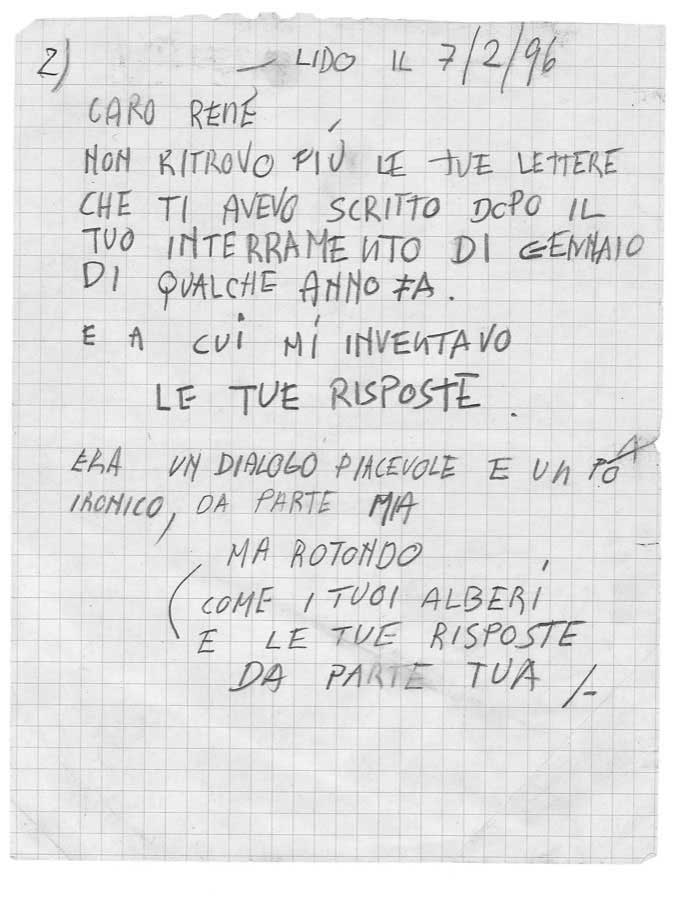 2)
— LIDO IL 7/2/96
CARO RENÉ
NON RITROVO PIÚ LE TUE LETTERE
CHE TI AVEVO SCRITTO DOPO IL
TUO INTERRAMENTO DI GENNAIO
DI QUALCHE ANNO FA.
E A CUI MI INVENTAVO
LE TUE RISPOSTE.
ERA UN DIALOGO PIACEVOLE E UN PÒ
IRONICO, DA PARTE MIA
MA ROTONDO
(COME I TUOI ALBERI
E LE TUE RISPOSTE
DA PARTE TUA /-